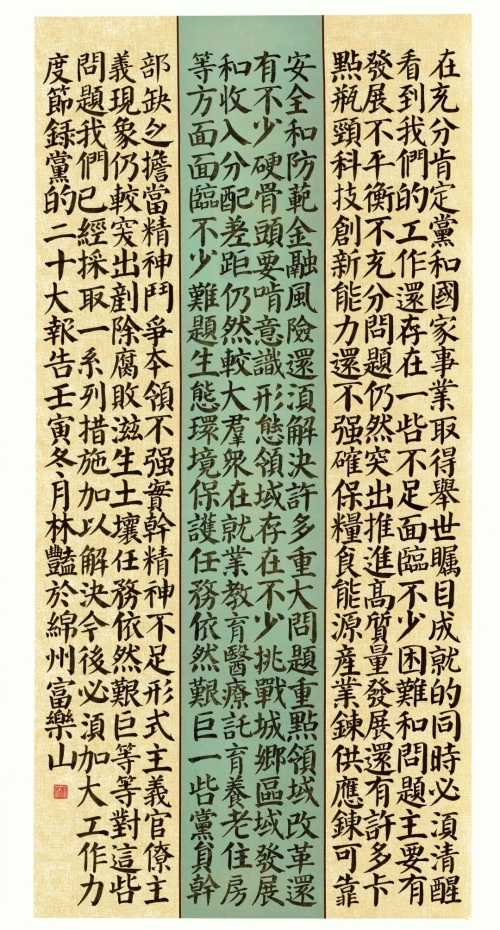 在充分肯定黨和國家事業取得舉世矚目成就的同時必須清醒
看到我們的工作還存在一些不足面臨不少困難和問題主要有
發展不平衡不充分問題仍然突出推進高質量發展還有許多卡
點瓶頸科技創新能力還不强確保糧食能源産業鍊供應鍊可靠
安全和防範金融風險還須解決許多重大問題重點領域改革還
有不少硬骨頭要啃意識形態領域存在不少挑戰城鄉區域發展
和收入分配差距仍然較大羣衆在就業教育醫療託育養老住房
等方面面臨不少難題生態環境保護任務依然艱巨一些黨員幹
部缺乏擔當精神鬥爭本領不强實幹精神不足形式主義官僚主
義現象仍較突出剷除腐敗滋生土壤任務依然艱巨等等對這些
問題我們已經採取一系列措施加以解決今後必須加大工作力
度節録黨的二十大報告壬寅冬月林豔於綿州富樂山